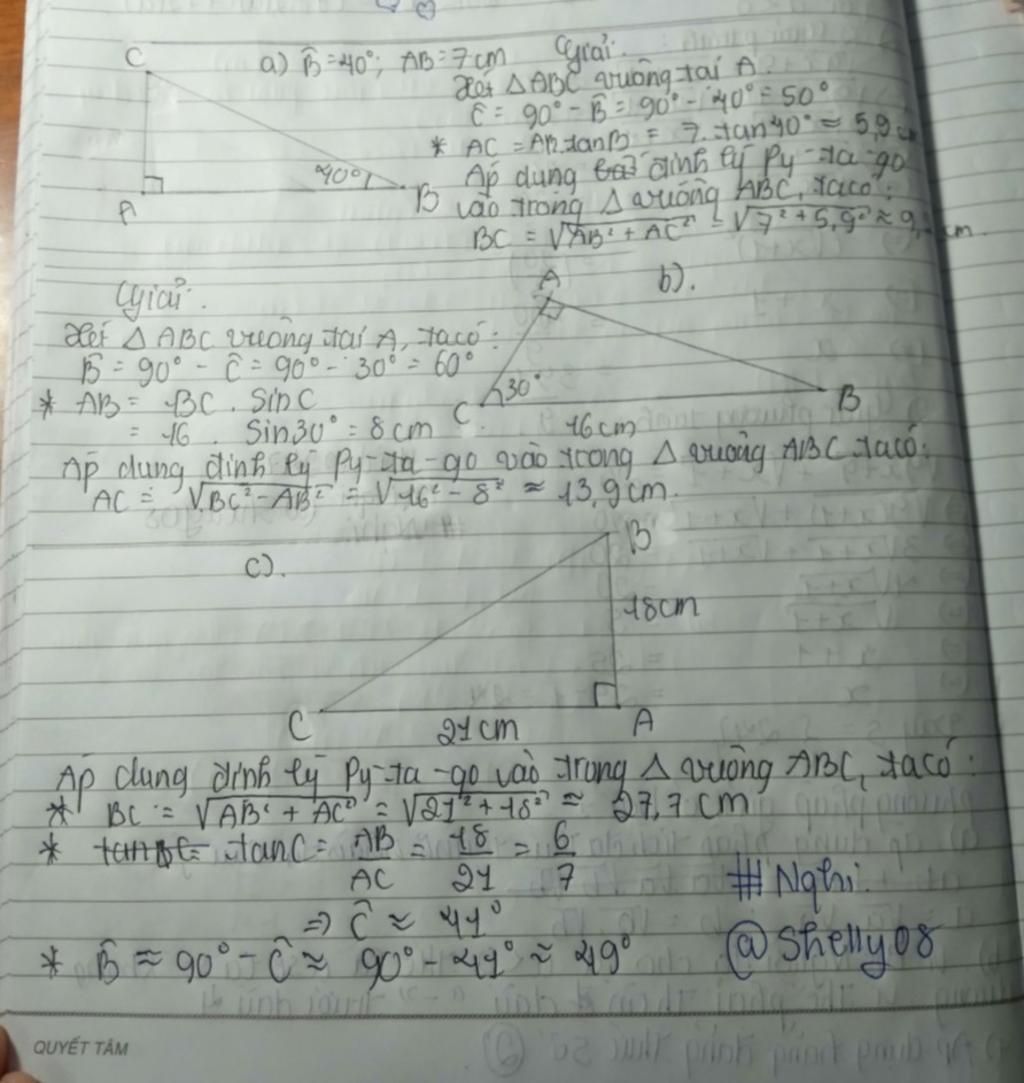 a) B̂=40°; AB=7cm Giải:
Xét △ABC vuông tại A.
Ĉ = 90° - B̂ = 90° - 40° = 50°
* AC = AB.tanB = 7.tan40° ≈ 5,9 cm
Áp dụng định lý Py-ta-go
vào trong △ vuông ABC, ta có:
BC = √AB² + AC² = √7² + 5,9² ≈ 9, cm
C
40°
A
B
b).
Giải:
Xét △ ABC vuông tại A, ta có:
B̂ = 90° - Ĉ = 90° - 30° = 60°
* AB = BC . SinC
= 16 . Sin30° = 8cm
A
30°
C
B
16cm
Áp dụng định lý Py-ta-go vào trong △ vuông ABC ta có:
AC = √BC² - AB² = √16² - 8² ≈ 13,9cm.
c).
B
18cm
C
21cm
A
Áp dụng định lý Py-ta-go vào trong △ vuông ABC, ta có:
* BC = √AB² + AC² = √21² + 18² ≈ 27,7 cm
* tanC = AB/AC = 18/21 = 6/7
⇒ Ĉ ≈ 41°
* B̂ ≈ 90° - Ĉ ≈ 90° - 41° ≈ 49°
# Nghi.
@Shelly08
QUYẾT TÂM